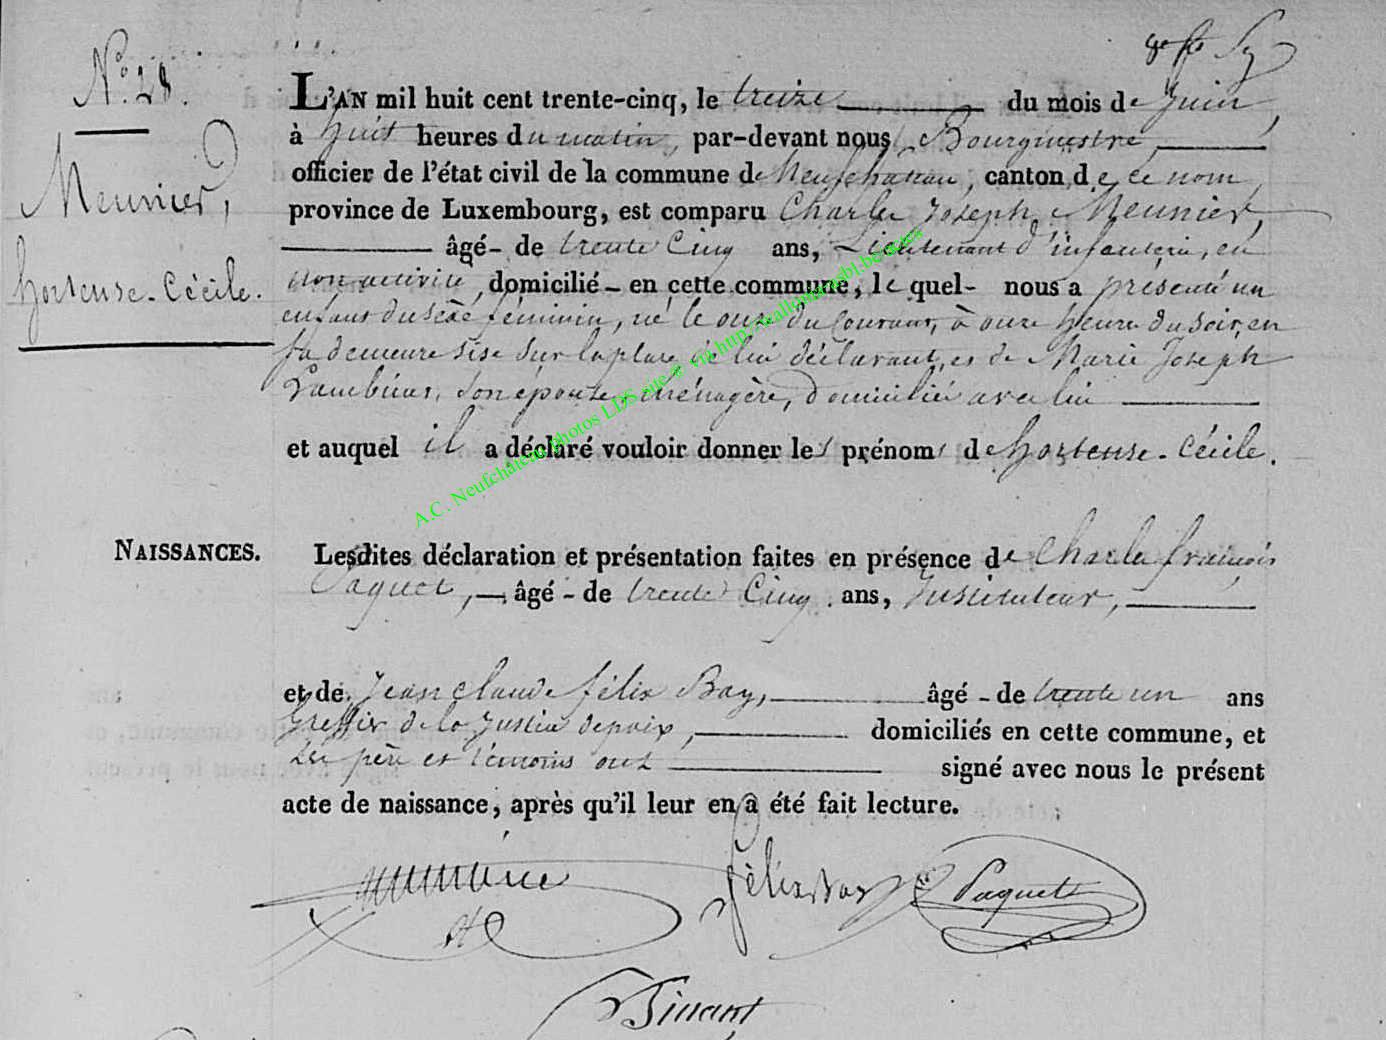 N.o 28.
Meunier,
hortense-Cécile.
L'AN mil huit cent trente-cinq, le treize du mois de Juin,
à huit heures du matin, par-devant nous, Bourgmestre,
officier de l'état civil de la commune de Neufchateau, canton de ce nom,
province de Luxembourg, est comparu Charles Joseph Meunier,
âgé - de trente Cinq ans, Lieutenant d'infanterie, en
non activité, domicilié - en cette commune, lequel - nous a présenté un
enfant du sèxe féminin, né le onze du Courant, à onze heures du Soir, en
sa demeure sise sur la place de lui déclarant, et de Marie Joseph
son épouse, ménagère, domiciliée avec lui
et auquel il a déclaré vouloir donner les prénoms de hortense-Cécile.
NAISSANCES.
Lesdites déclaration et présentation faites en présence de Charles françois
Paquet, âgé - de trente Cinq ans, Instituteur,
et de Jean Claude félix Bay, âgé - de trente un ans
Greffier de la Justice de paix, domiciliés en cette commune, et
Les père et témoins ont signé avec nous le présent
acte de naissance, après qu'il leur en a été fait lecture.
Félix Bay
Paquet
A.C. Neufchâteau photos LDS site # via http://